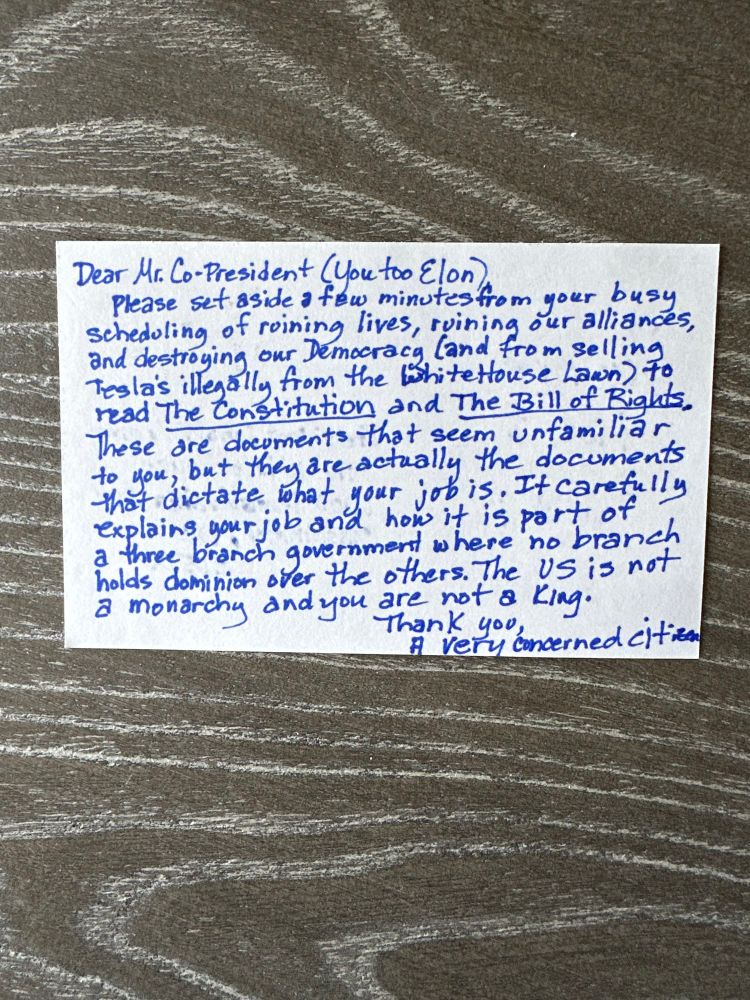 Dear Mr. Co-President (You too Elon),
Please set aside a few minutes from your busy
scheduling of ruining lives, ruining our alliances,
and destroying our Democracy (and from selling
Tesla's illegally from the WhiteHouse Lawn) to
read The Constitution and The Bill of Rights.
These are documents that seem unfamiliar
to you, but they are actually the documents
that dictate what your job is. It carefully
explains your job and how it is part of
a three branch government where no branch
holds dominion over the others. The US is not
a monarchy and you are not a King.
Thank you,
A very concerned citizen